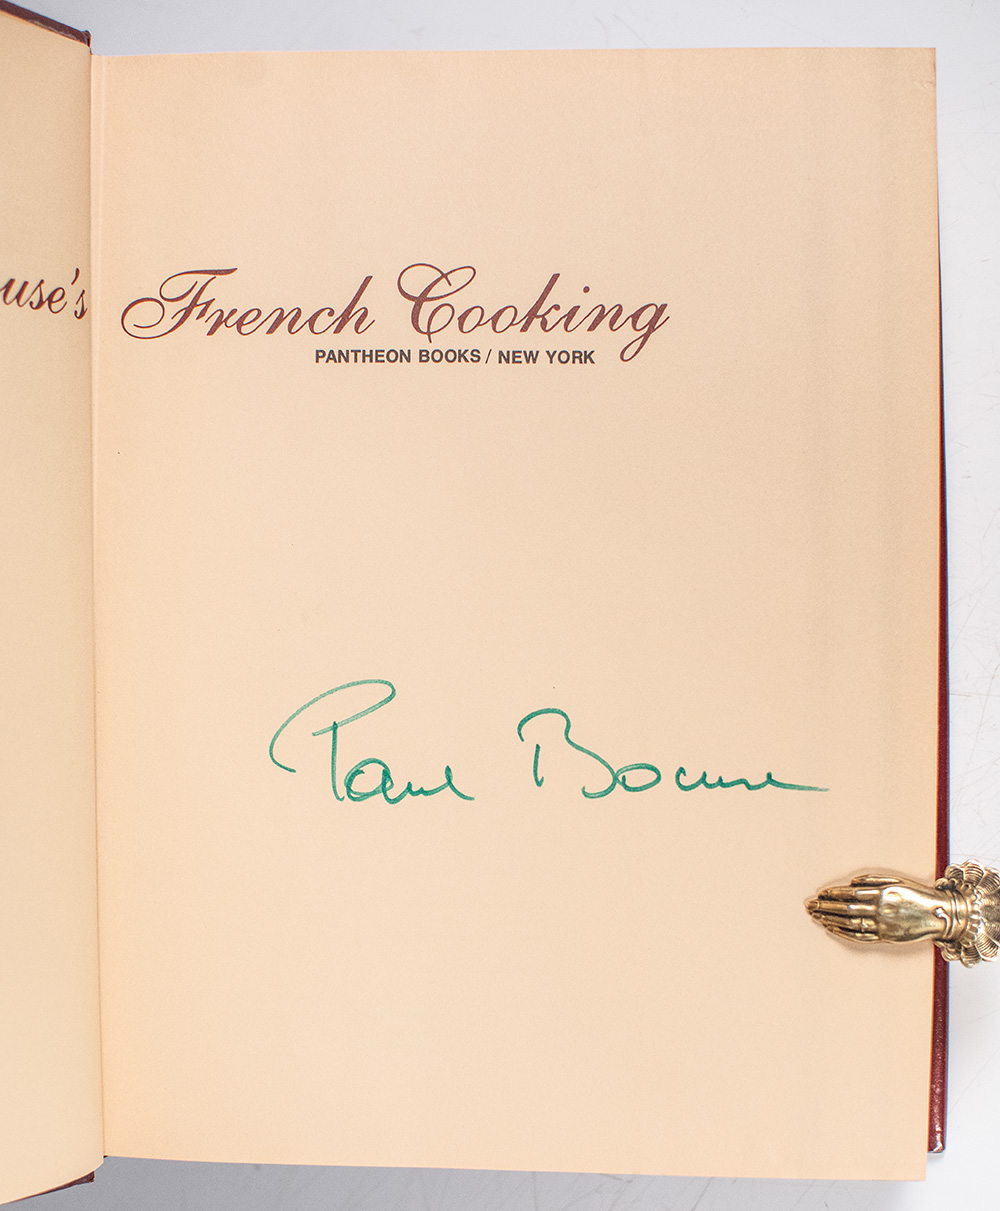 use's French Cooking
PANTHEON BOOKS / NEW YORK
Paul Bocuse